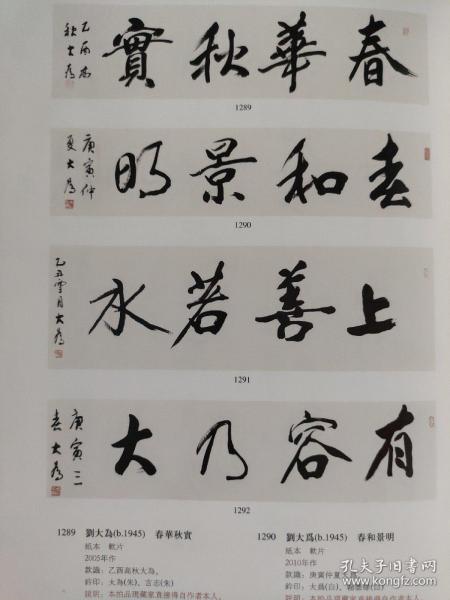 春華秋實
乙酉高秋大為
1289
春和景明
庚寅仲夏大為
1290
上善若水
乙丑雪月大為
1291
有容乃大
庚寅三春大為
1292
1289 劉大為(b.1945) 春華秋實
紙本 軟片
2005年作
款識：乙酉高秋大為。
鈐印：大為(朱)、言志(朱)
說明：本拍品現藏家直接得自作者本人。
1290 劉大爲(b.1945) 春和景明
紙本 軟片
2010年作
款識：庚寅仲夏大
鈐印：大爲(白)、
說明：本拍品現藏家直接得自作者本人。
孔夫子舊書網